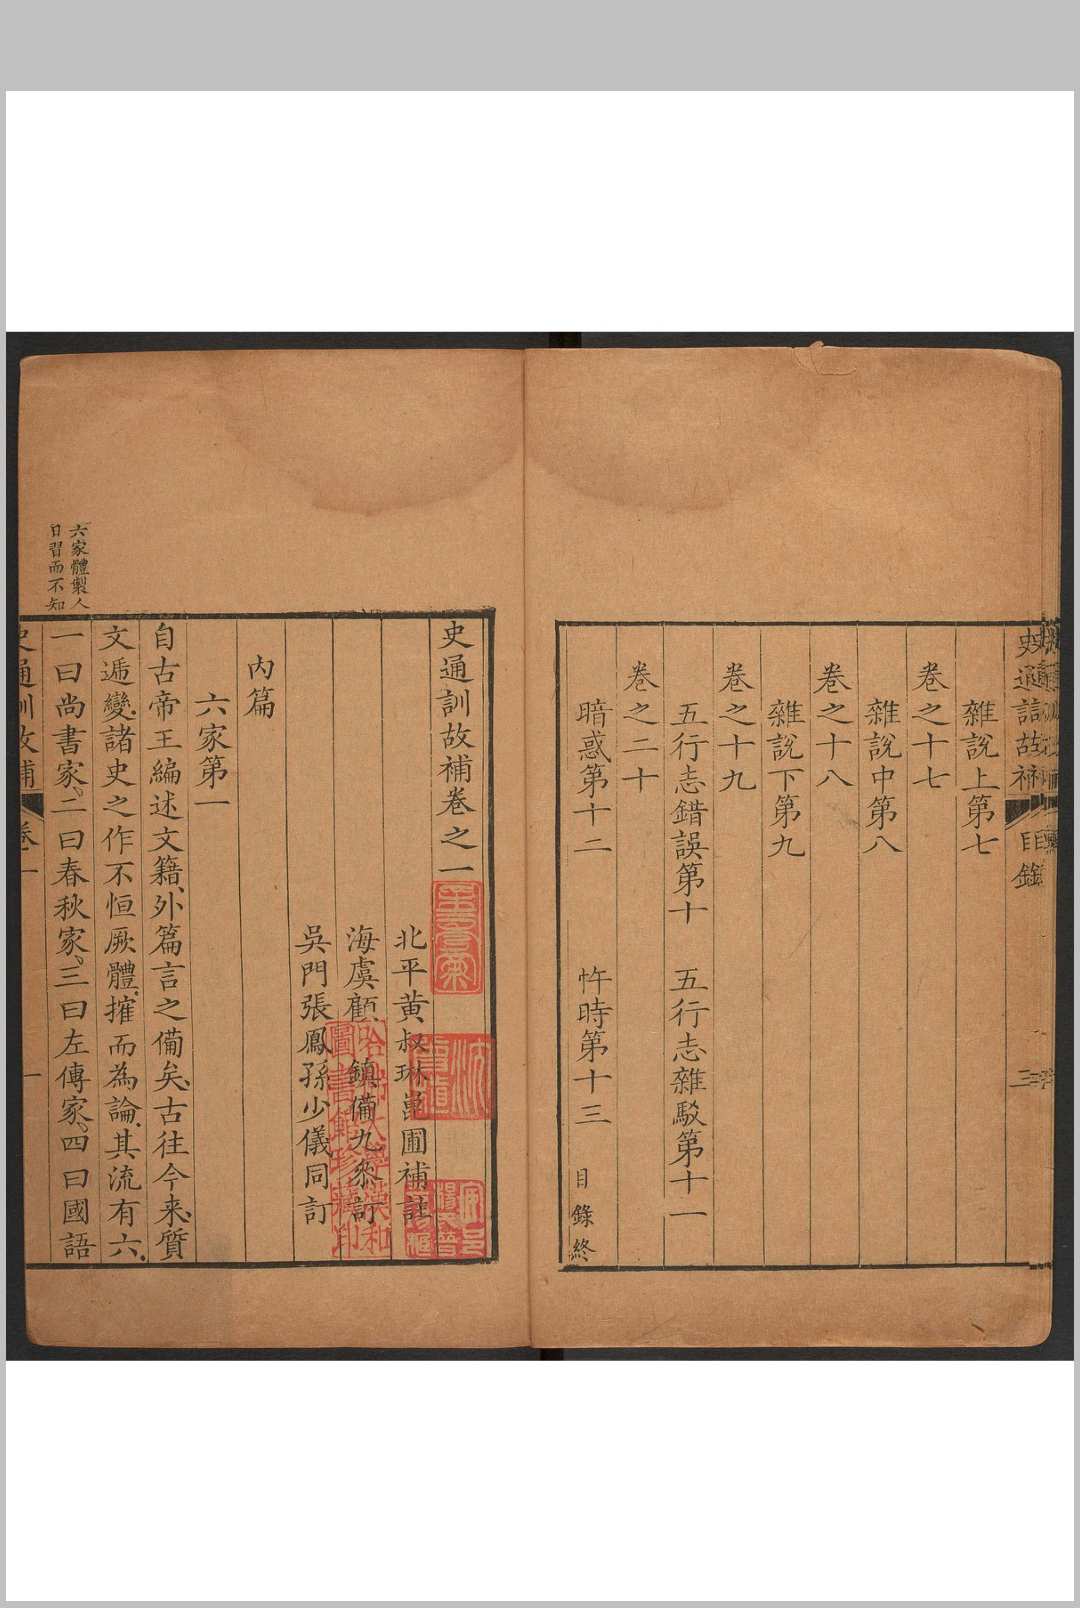 史通訓故補
目錄
三
雜說上第七
卷之十七
雜說中第八
卷之十八
雜說下第九
卷之十九
五行志錯誤第十　五行志雜駁第十一
卷之二十
暗惑第十二　忤時第十三　目錄終
史通訓故補卷之一
北平黃叔琳崑圃補註
海虞顧　鎮備九叅訂
吳門張鳳孫少儀同訂
哈佛大學漢和
圖書館珍藏印
內篇
六家第一
自古帝王編述文籍、外篇言之備矣、古往今来、質
文遞變、諸史之作不恒厥體、搉而為論、其流有六、
一曰尚書家、二曰春秋家、三曰左傳家、四曰國語
六家體製人
日習而不知
史通訓故補
卷一
一